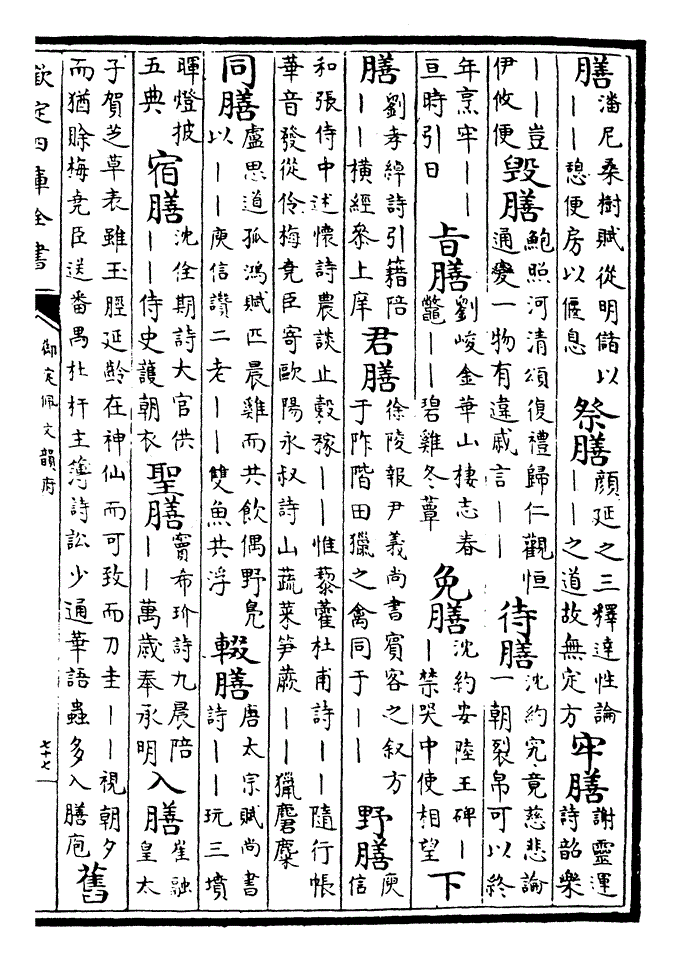 膳潘尼桑樹賦從明儲以——憩便房以偃息祭膳顔延之三釋達性論——之道故無定方牢膳謝靈運詩韶樂
——豈伊攸便毀膳鮑照河清頌復禮歸仁觀恒通變一物有違戚言——待膳沈約究竟慈悲論一朝裂帛可以終
年烹牢——亘時引日旨膳劉峻金華山棲志春鼈——碧雞冬蕈免膳沈約安陸王碑——禁哭中使相望下
膳劉孝綽詩引籍陪——横經參上庠君膳徐陵報尹義尚書賓客之叙方于阼階田獵之禽同于——野膳庾信
和張侍中述懷詩農談止穀稼——惟藜藿杜甫詩——隨行帳華音發從伶梅堯臣寄歐陽永叔詩山蔬菜笋蕨——獵麏麋
同膳盧思道孤鴻賦匹晨雞而共飲偶野凫以——庾信讚二老——雙魚共浮輟膳唐太宗賦尚書詩——玩三墳
暉燈披五典宿膳沈佺期詩大官供——侍史護朝衣聖膳竇希玠詩九晨陪——萬歲奉承明入膳崔融皇太
子賀芝草表雖玉脛延齡在神仙而可致而刀圭——視朝夕而猶賒梅堯臣送番禺杜杆主簿詩訟少通華語蟲多入膳庖舊
欽定四庫全書
御定佩文韻府
七十七